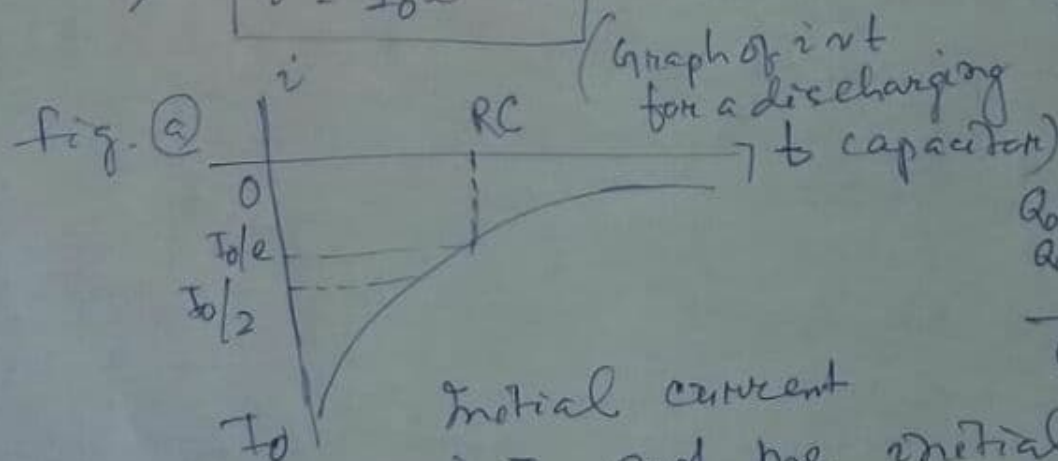 i
(Graph of i v t
for a discharging
capacitor)
fig. (a)
RC
t
0
I₀/e
I₀/2
I₀
Q₀
Initial current
initial